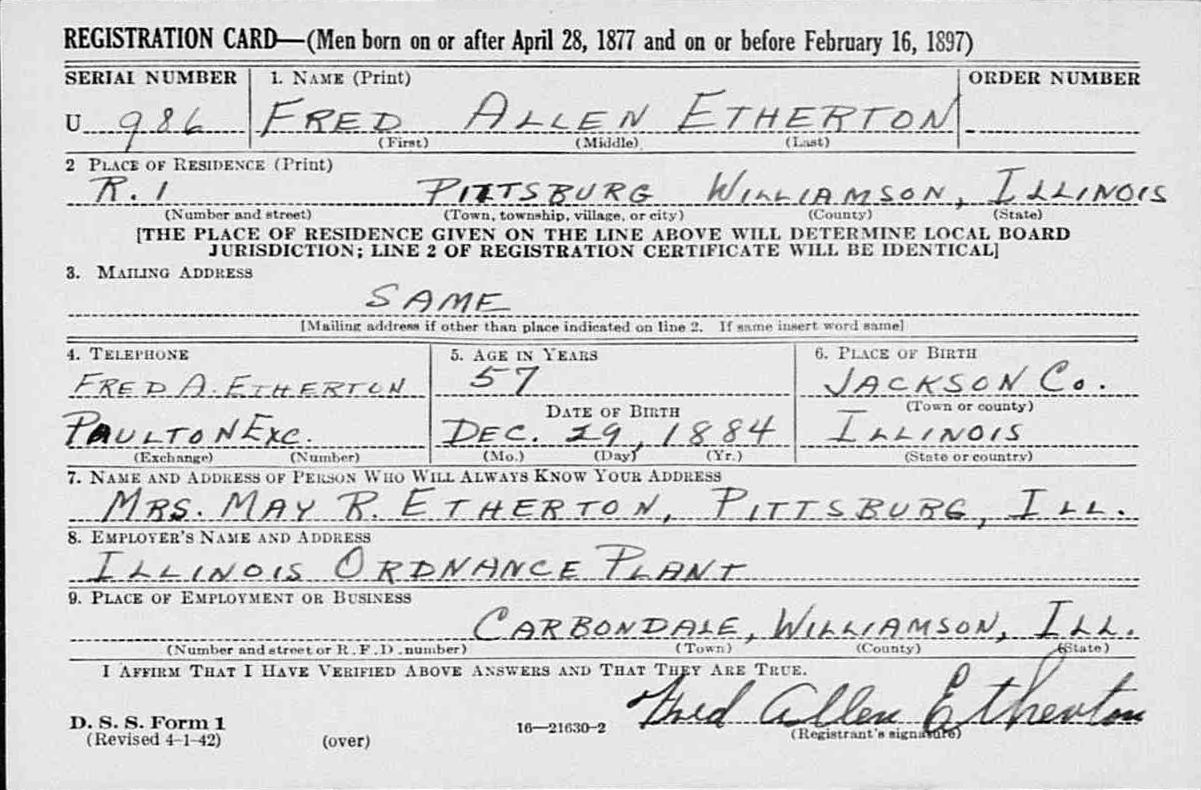 REGISTRATION CARD—(Men born on or after April 28, 1877 and on or before February 16, 1897)
SERIAL NUMBER 1. NAME (Print) ORDER NUMBER
U 986 FRED ALLEN ETHERTON
(First) (Middle) (Last)
2 PLACE OF RESIDENCE (Print)
R. 1 PITTSBURG WILLIAMSON, ILLINOIS
(Number and street) (Town, township, village, or city) (County) (State)
[THE PLACE OF RESIDENCE GIVEN ON THE LINE ABOVE WILL DETERMINE LOCAL BOARD
JURISDICTION; LINE 2 OF REGISTRATION CERTIFICATE WILL BE IDENTICAL]
3. MAILING ADDRESS
SAME
[Mailing address if other than place indicated on line 2. If same insert word same]
4. TELEPHONE 5. AGE IN YEARS 6. PLACE OF BIRTH
FRED A. ETHERTON 57 JACKSON CO.
DATE OF BIRTH (Town or county)
PAULTON EXC. DEC. 29, 1884 ILLINOIS
(Exchange) (Number) (Mo.) (Day) (Yr.) (State or country)
7. NAME AND ADDRESS OF PERSON WHO WILL ALWAYS KNOW YOUR ADDRESS
MRS. MAY R. ETHERTON, PITTSBURG, ILL.
8. EMPLOYER'S NAME AND ADDRESS
ILLINOIS ORDNANCE PLANT
9. PLACE OF EMPLOYMENT OR BUSINESS
CARBONDALE, WILLIAMSON, ILL.
(Number and street or R. F. D. number) (Town) (County) (State)
I AFFIRM THAT I HAVE VERIFIED ABOVE ANSWERS AND THAT THEY ARE TRUE.
Fred Allen Etherton
D. S. S. Form 1 16—21630-2 (Registrant's signature)
(Revised 4-1-42) (over)